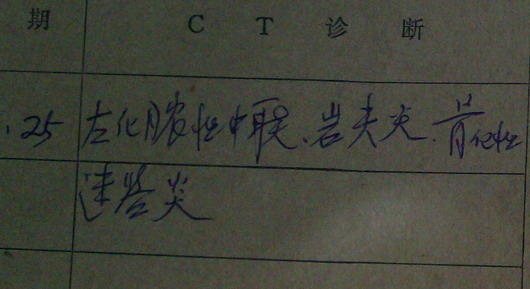 期 CT诊断
.25 左化脓性中联、岩夫炎.骨化性
迷路炎